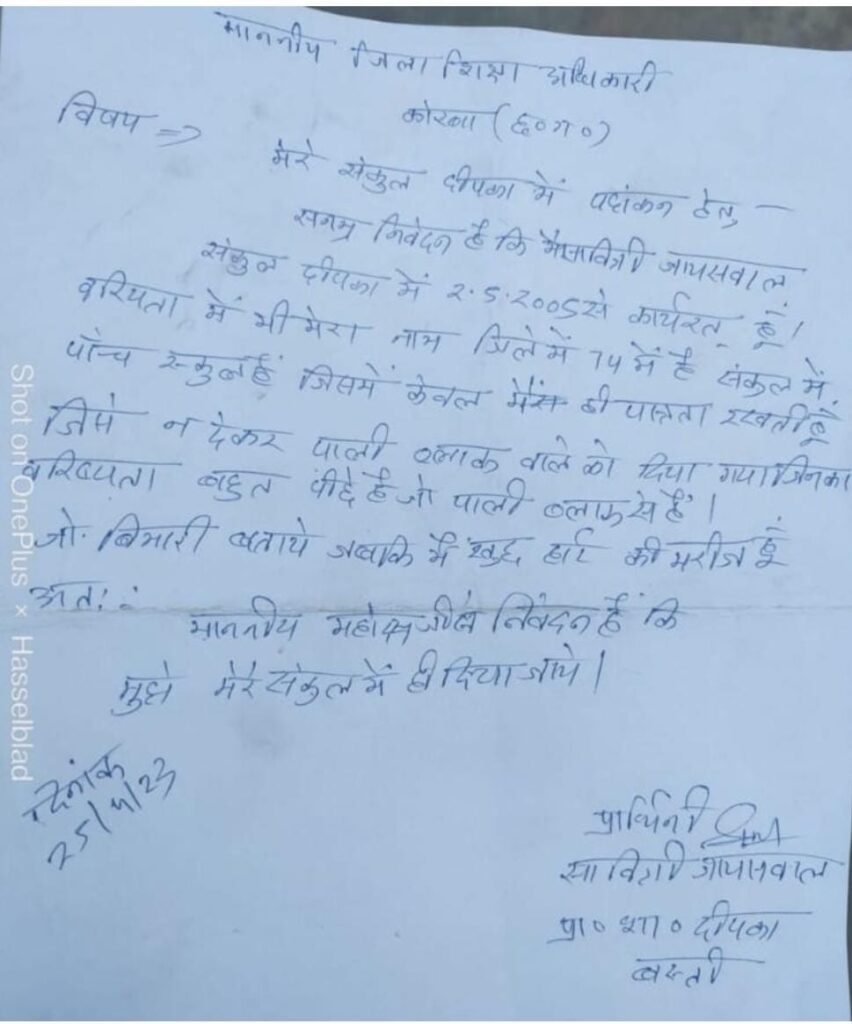 माननीय जिला शिक्षा अधिकारी
कोरबा (छ०ग०)
विषय =>
मेरे संकुल दीपका में पदांकन हेतु —
सनम्र निवेदन है कि मैं सावित्री जायसवाल
संकुल दीपका में 2.5.2005 से कार्यरत हूँ।
वरियता में भी मेरा नाम जिले में 74 में है संकुल में
पाँच स्कुल हैं जिसमें केवल मैं ही पात्रता रखती हूँ
जिसे न देकर पाली ब्लाक वाले को दिया गया जिनका
वरिष्यता बहुत पीछे है जो पाली ब्लाक से हैं।
जो. बिमारी बताये जबकि मैं खुद हार्ट की मरीज हूँ
अतः :
माननीय महोदय जी से निवेदन है कि
मुझे मेरे संकुल में ही दिया जाये।
दिनांक
25/4/23
प्रार्थिनी
सावित्री जायसवाल
प्रा० शा० दीपका
बस्ती
Shot on OnePlus × Hasselblad